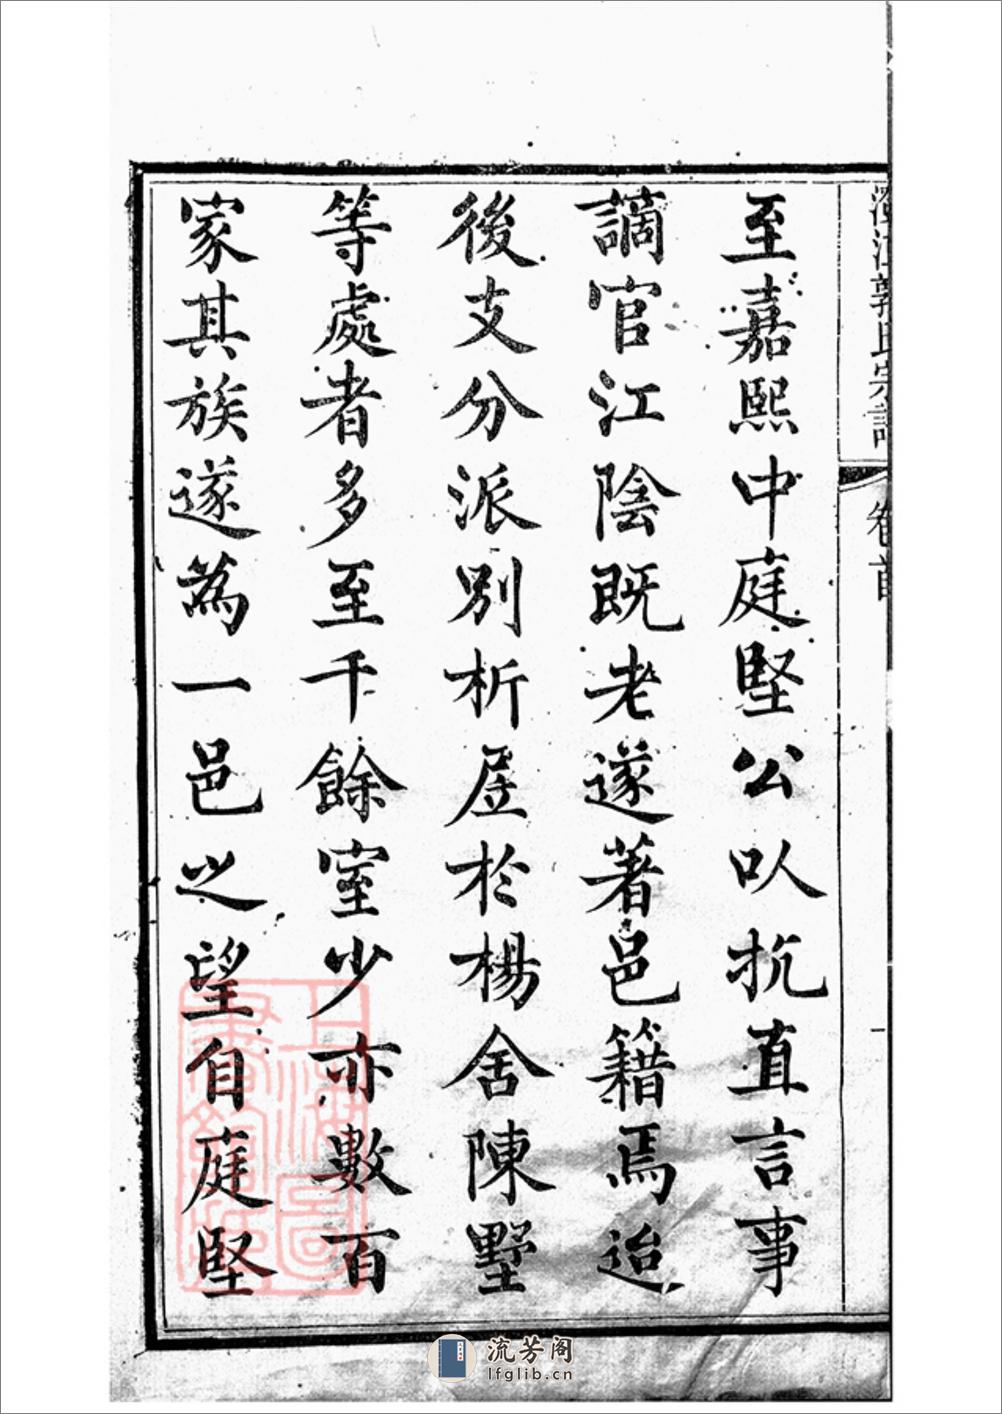 至嘉熙中庭堅公以抗直言事
謫官江陰既老遂著邑籍焉迨
後支分派別析居於楊舍陳墅
等處者多至千餘室少亦數百
家其族遂為一邑之望自庭堅
江郭氏宗譜
卷首
一
上海圖書館藏
流芳阁
lfglib.cn